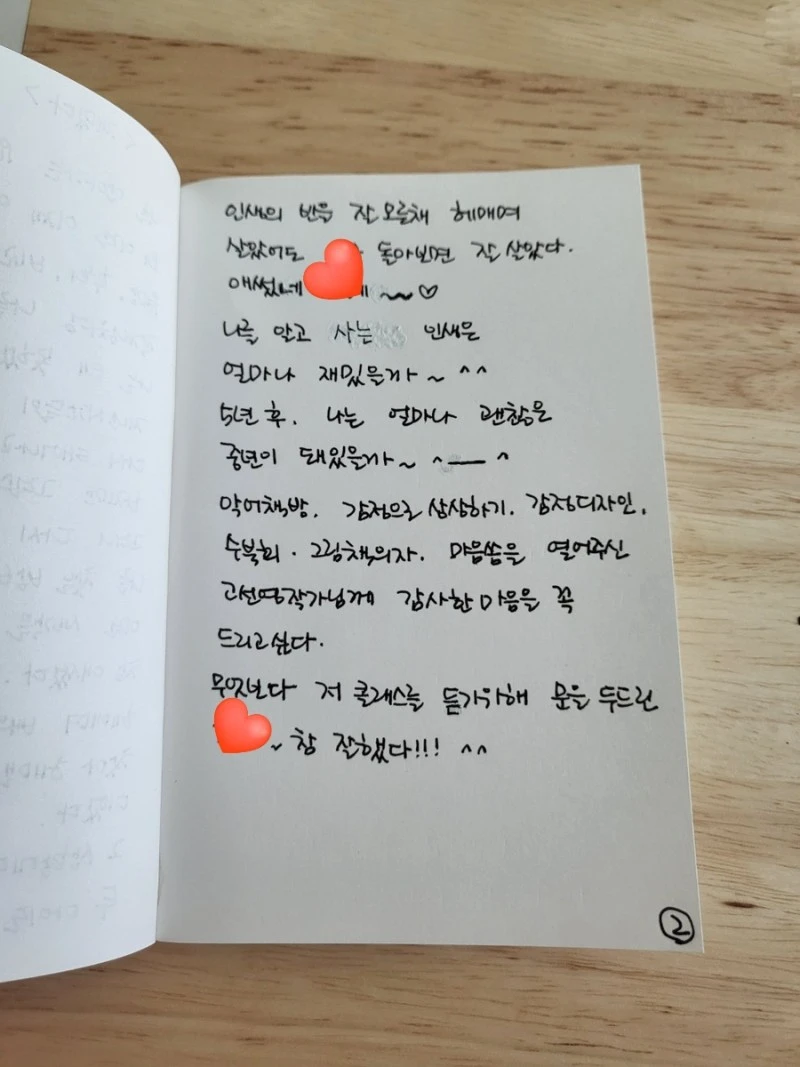 인생의 반을 잘 모른채 헤매여
살았어도 돌아보면 잘 살았다.
애썼네 ~~♡
나를 알고 사는 인생은
얼마나 재밌을까~ ^^
5년 후, 나는 얼마나 괜찮은
중년이 돼있을까~ ^__^
악어책방, 감정으로 상상하기, 감정디자인,
수북회·그림책의자, 마음쏨을 열어주신
고선영작가님께 감사한 마음을 꼭
드리고싶다.
무엇보다 저 클래스를 듣기위해 문을 두드린
~ 참 잘했다!!! ^^
②